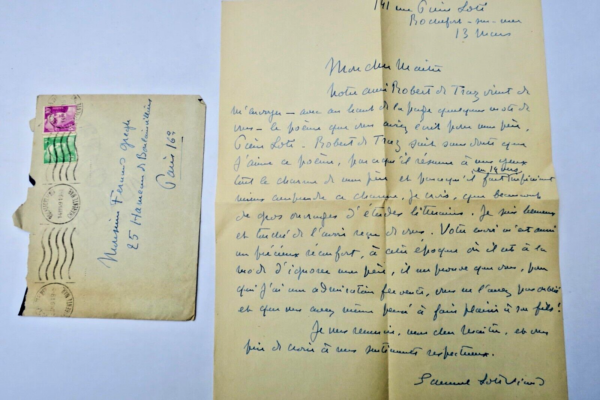 Monsieur Fernand Gregh
25 Hameau de Boulainvilliers
Paris 16e
141 rue Pierre Loti
Rochefort-sur-mer
13 Mars
Mon cher Maître
Notre ami Robert de Traz vient de
m'envoyer - avec au haut de la page quelques mots de
vous - le poème que vous aviez écrit pour mon père,
Pierre Loti. Robert de Traz sait sans doute que
j'aime ce poème, parce qu'il résume à mes yeux
tout le charme de mon père et parce qu'il fait
en 14 vers
mieux comprendre ce charme, je crois, que beaucoup
de gros ouvrages d'études littéraires. Je suis heureux
et touché de l'avoir reçu de vous. Votre envoi m'est aussi
un précieux réconfort, à une époque où il est à la
mode d'ignorer mon père, il me prouve que vous, pour
qui j'ai une admiration fervente, vous ne l'avez pas oublié
et que vous avez même pensé à faire plaisir à son fils!
Je vous remercie, mon cher Maître, et vous
prie de croire à mes sentiments respectueux.
Samuel Loti-Viaud